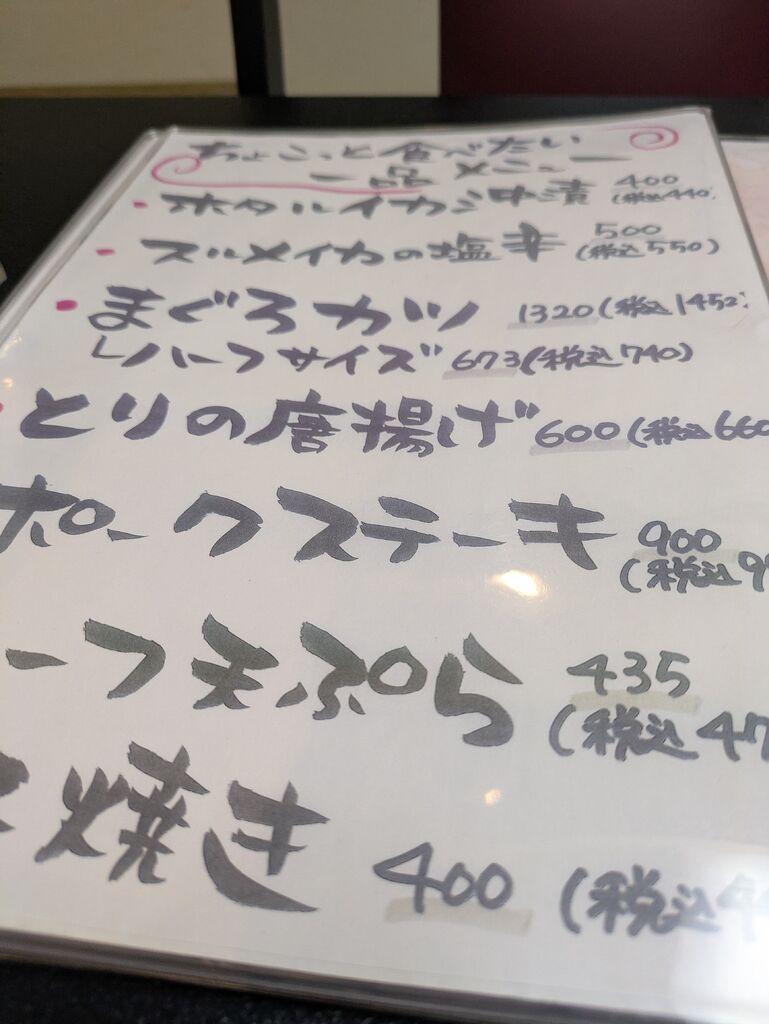 ちょこっと食べたい
一品 メニュー
・ホタルイカ沖漬 400 (税込440)
・スルメイカの塩辛 500 (税込550)
・まぐろカツ 1320 (税込1452)
ハーフサイズ 673 (税込740)
・とりの唐揚げ 600 (税込660
ポークステーキ 900 (税込9
ーフ天ぷら 435 (税込47
焼き 400 (税込4